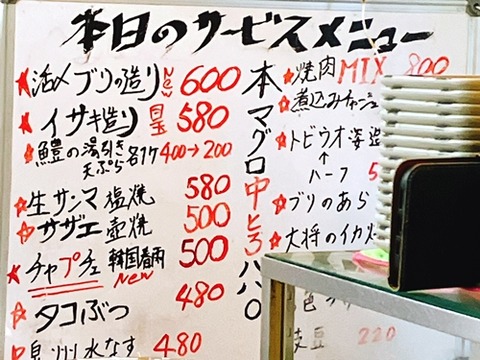 本日のサービスメニュー
活〆ブリの造り New 600
イサキ造り 目玉 580
鱧の湯引き
天ぷら 各1ケ 400→200
生サンマ塩焼 580
サザエ壺焼 500
チャプチェ 韓国春雨 New 500
タコぶつ 480
泉州水なす 480
本マグロ中とろ
焼肉MIX 800
煮込みチャンジャ
トビウオ姿造
↑
ハーフ 5
ブリのあら
大将のイカ
枝豆 220